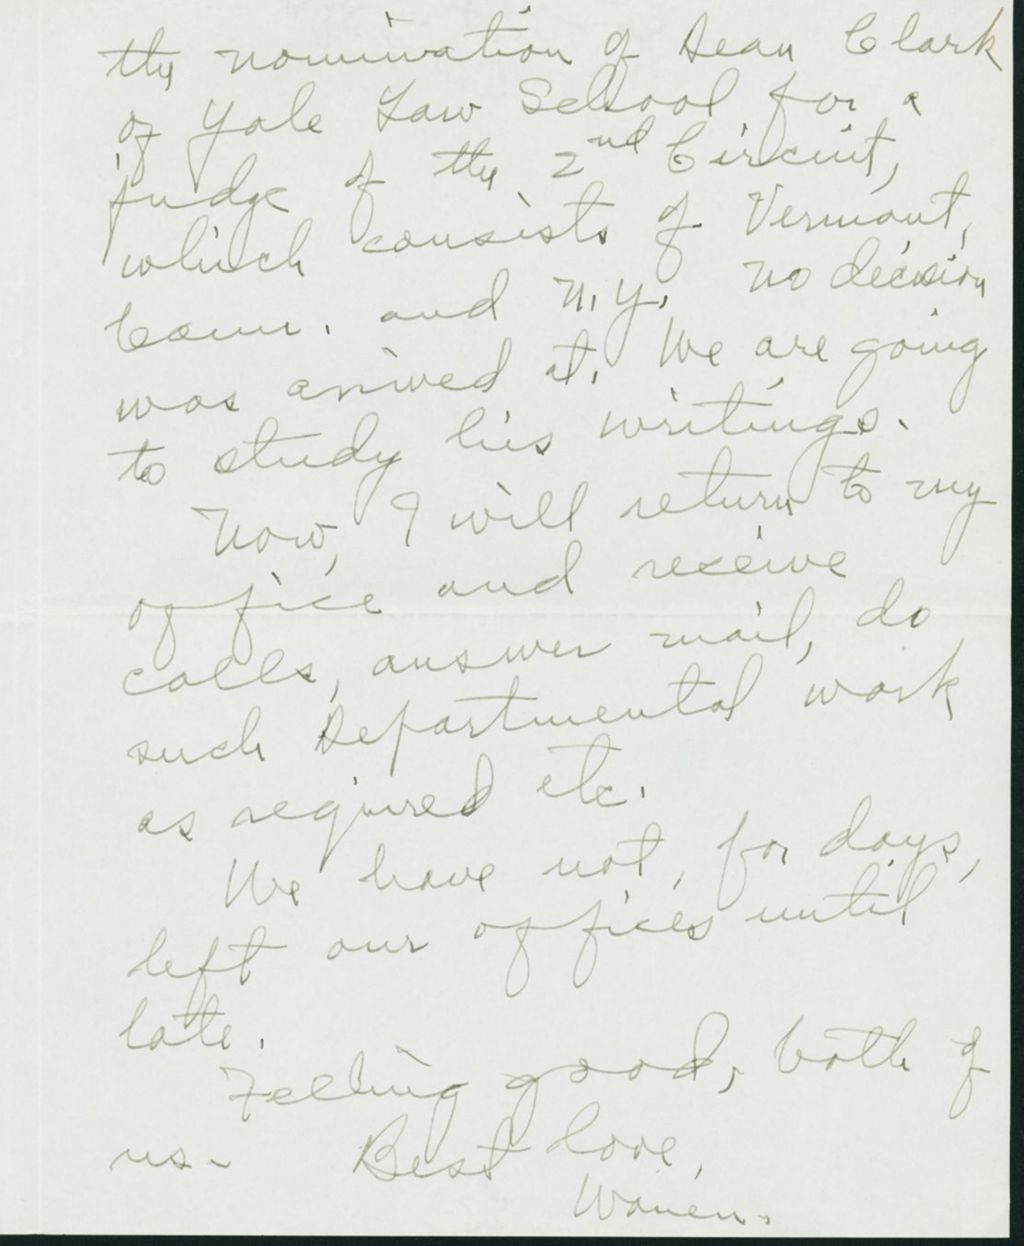 the nomination of Dean Clark
of Yale Law School for a
judge of the 2nd Circuit,
which consists of Vermont,
Conn. and N.Y. No decision
was arrived at. We are going
to study his writings.
Now, I will return to my
office and receive
calls, answer mail, do
such Departmental work
as required etc.
We have not, for days,
left our offices until
late.
Feeling good, both of
us. Best love,
Warren.